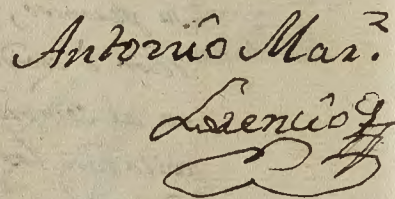 Antonio Mar.ª
Lorencio